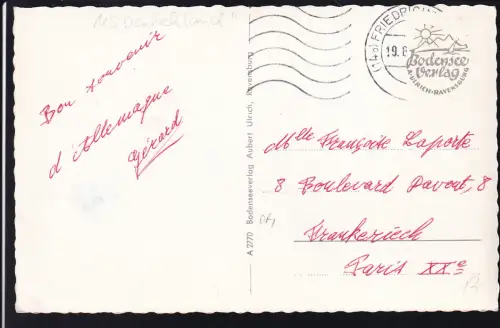 MS Deutschland
Bon souvenir
d'Allemagne
Gérard
A 2770 Bodenseeverlag Aubert Ulrich, Ravensburg
(14b) FRIEDRICH
19.8
Bodensee
Verlag
A. ULRICH · RAVENSBURG
Mlle Françoise Laporte
8 Boulevard Davout, 8
Frankreich
Paris XXe